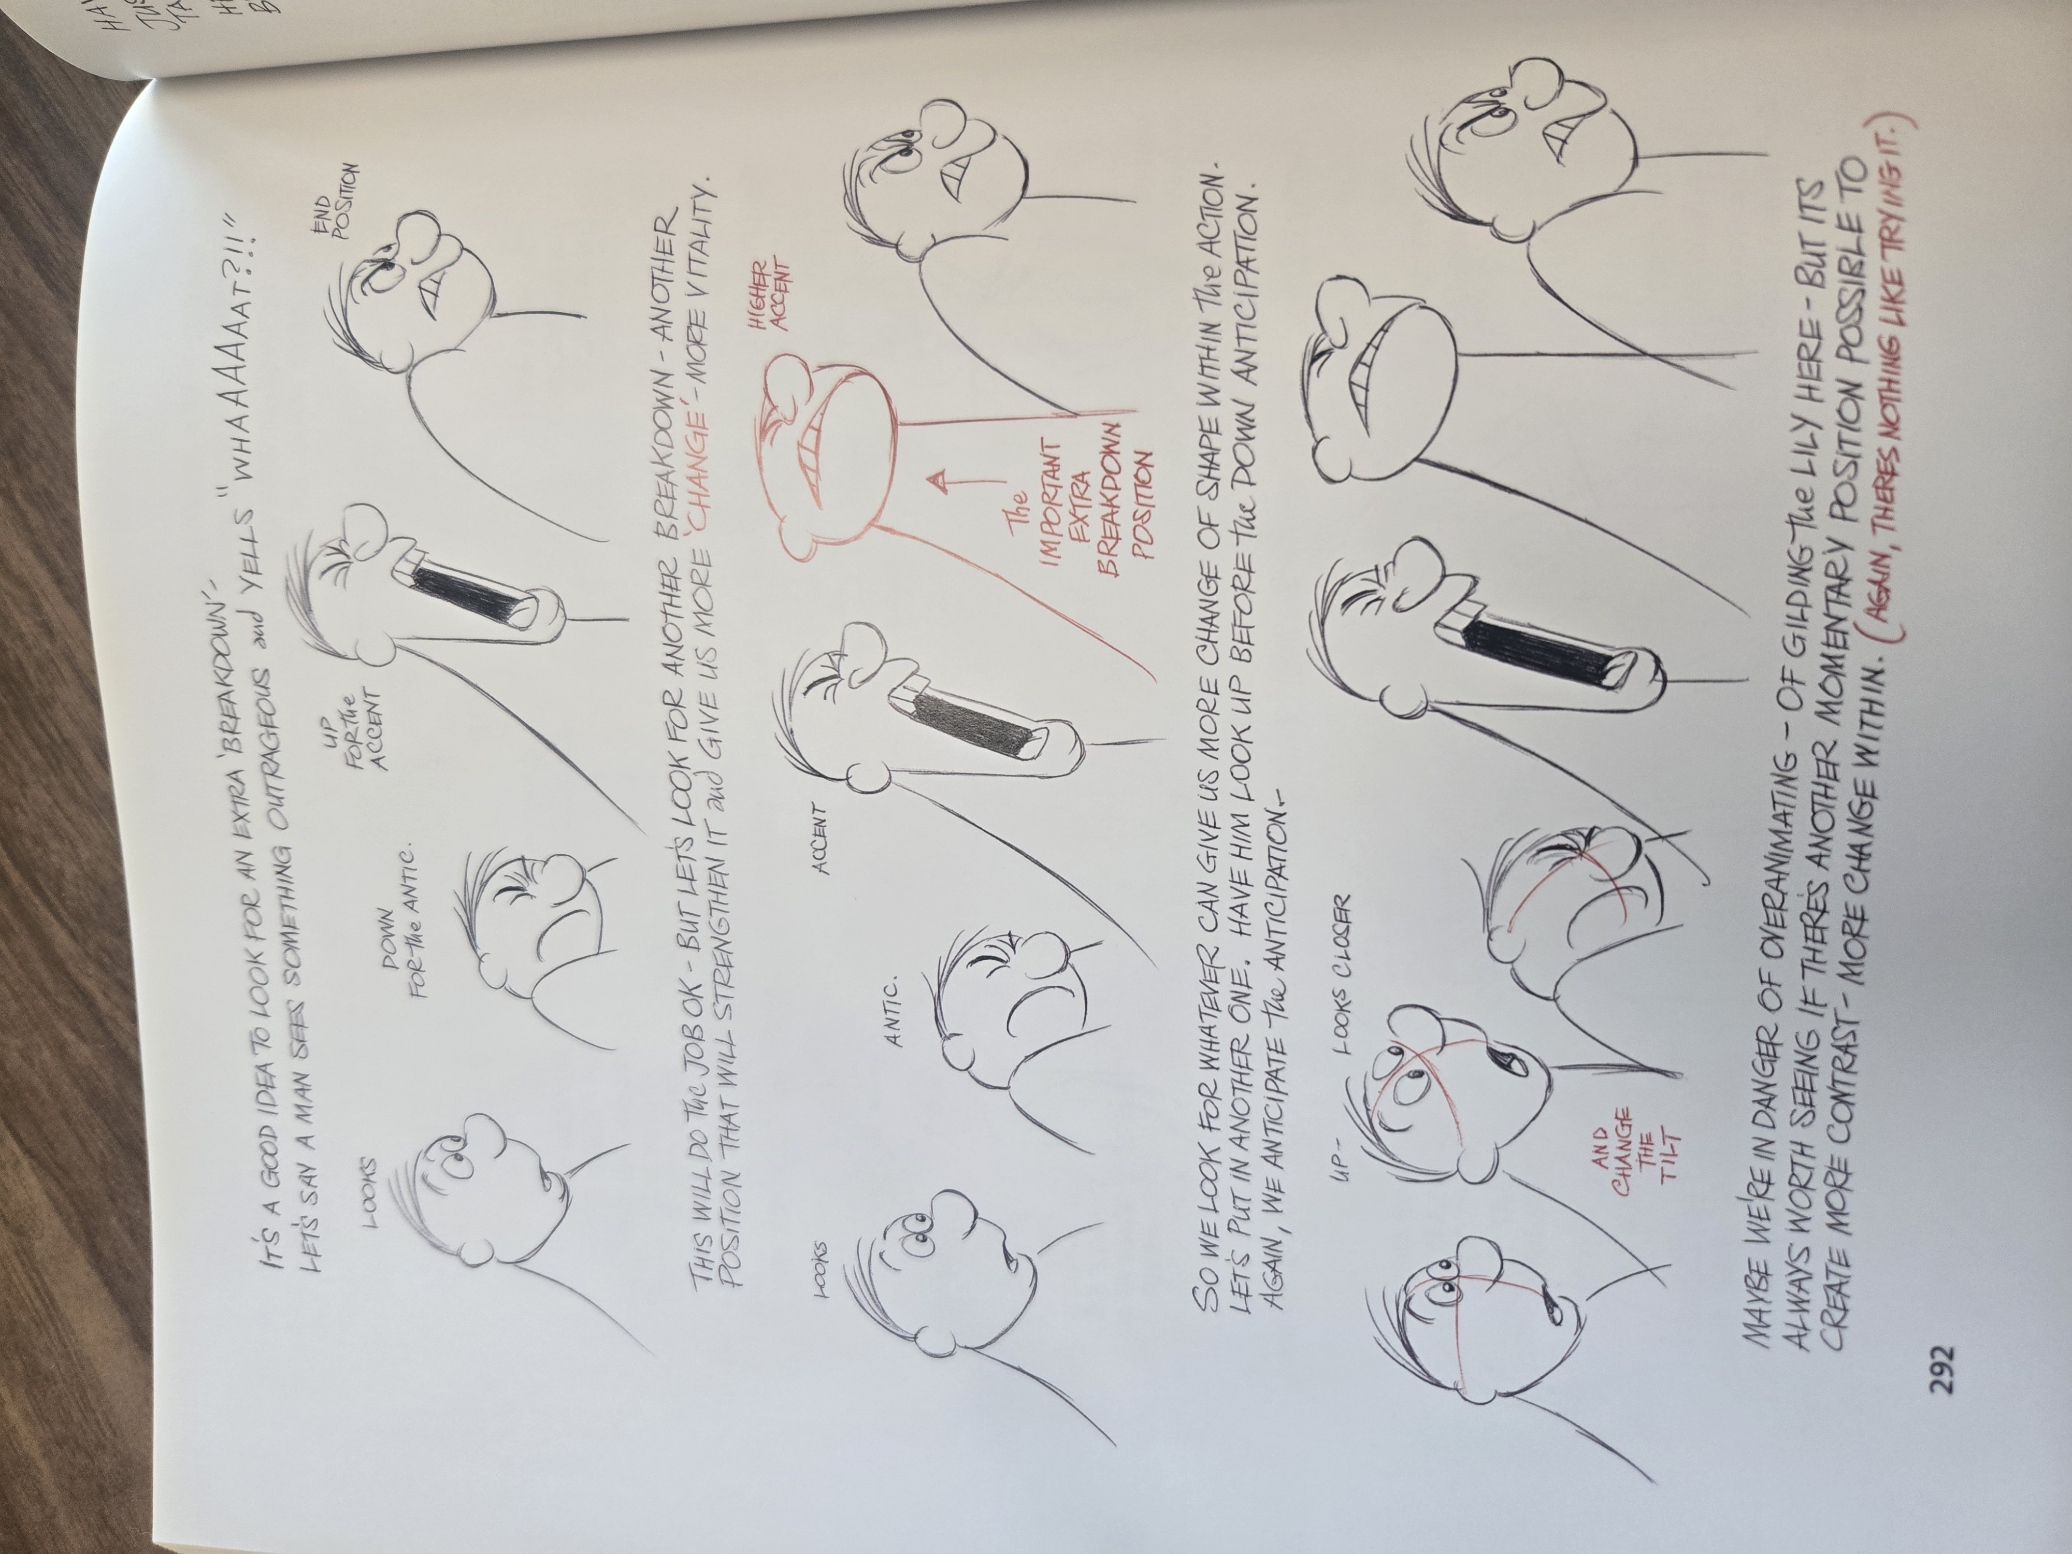 IT'S A GOOD IDEA TO LOOK FOR AN EXTRA 'BREAKDOWN'-
LET'S SAY A MAN SEES SOMETHING OUTRAGEOUS and YELLS "WHAAAAAAT?!!"
LOOKS
DOWN
FOR the ANTIC.
UP
FOR the
ACCENT
END
POSITION
THIS WILL DO the JOB OK - BUT LET'S LOOK FOR ANOTHER BREAKDOWN - ANOTHER
POSITION THAT WILL STRENGTHEN IT and GIVE US MORE 'CHANGE' - MORE VITALITY.
LOOKS
ANTIC.
ACCENT
HIGHER
ACCENT
The
IMPORTANT
EXTRA
BREAKDOWN
POSITION
SO WE LOOK FOR WHATEVER CAN GIVE US MORE CHANGE OF SHAPE WITHIN the ACTION.
LET'S PUT IN ANOTHER ONE. HAVE HIM LOOK UP BEFORE the DOWN ANTICIPATION.
AGAIN, WE ANTICIPATE the ANTICIPATION-
UP-
LOOKS CLOSER
AND
CHANGE
THE
TILT
MAYBE WE'RE IN DANGER OF OVERANIMATING - OF GILDING the LILY HERE - BUT ITS
ALWAYS WORTH SEEING IF THERE'S ANOTHER MOMENTARY POSITION POSSIBLE TO
CREATE MORE CONTRAST - MORE CHANGE WITHIN. (AGAIN, THERES NOTHING LIKE TRYING IT.)
292